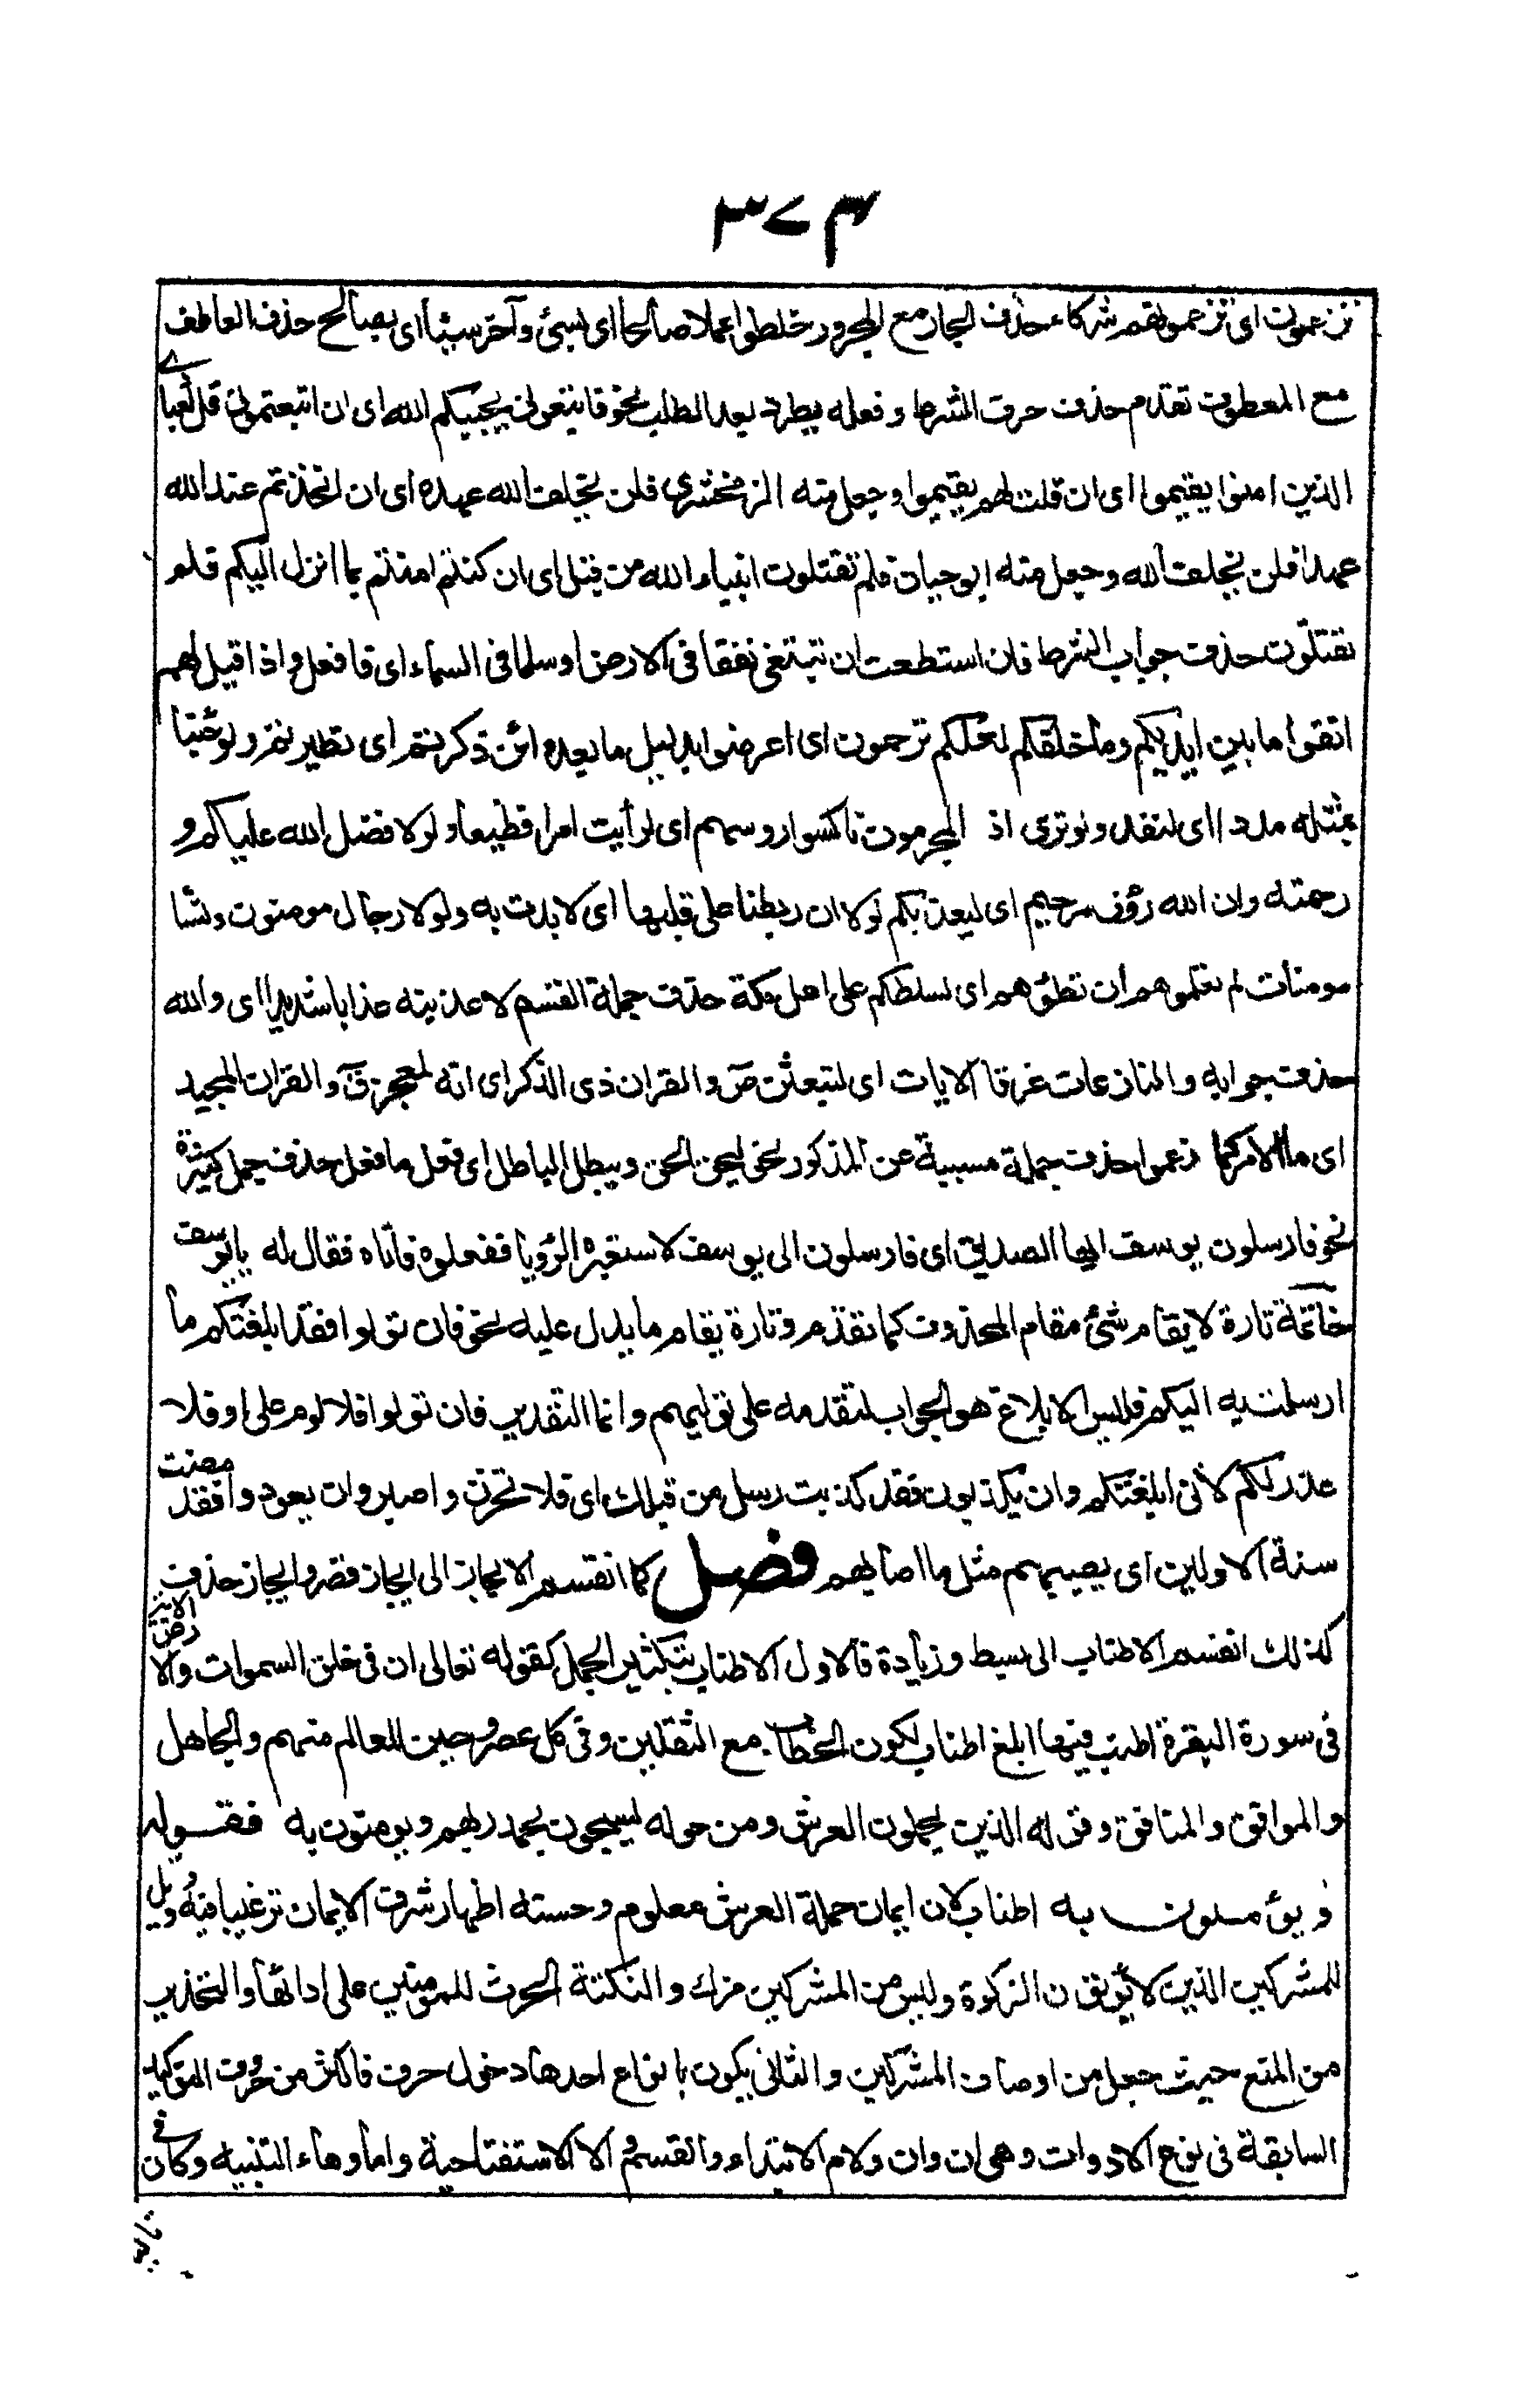 ٣٧٣
تزعمون اى تزعمونهم شركاء حذف الجار مع المجرور خلطوا عملا صالحا اى بسئ وآخر سيئا اى بصالح حذف العاطف
مع المعطوف تقدم حذف حرف الشرط وفعله يطرد بعد الطلب نحو فاتبعونى يحببكم الله اى ان اتبعتمونى قل لعبادي
الذين امنوا يقيموا اى ان قلت لهم يقيموا وجعل منه الزمخشرى فلن يخلف الله عهده اى ان اتخذتم عند الله
عهدا فلن يخلف الله وجعل منه ابو حيان فلم تقتلون انبياء الله من قبل اى ان كنتم امنتم بما انزل اليكم فلم
تقتلون حذف جواب الشرط فان استطعت ان تبتغى نفقا فى الارض او سلما فى السماء اى فافعل واذا قيل لهم
اتقوا ما بين ايديكم وما خلفكم لعلكم ترحمون اى اعرضوا بدليل ما بعده ائن ذكرتم اى تطيرتم ولو جئنا
بمثله مددا اى لنفد ولو ترى اذ المجرمون ناكسوا روسهم اى لرأيت امرا فظيعا ولولا فضل الله عليكم و
رحمته وان الله رؤف رحيم اى لعذبكم لولا ان ربطنا على قلبها اى لابدت به ولولا رجال مومنون ونسا
مومنات لم تعلموهم ان تطئوهم اى لسلطكم على اهل مكة حذف جملة القسم لاعذبنه عذابا شديدا اى والله
حذف جوابه والنازعات غرقا الايات اى لتبعثن صٓ والقران ذى الذكر اى انه لمعجز قٓ والقران المجيد
اى ما الامر كما زعموا حذف جملة مسببة عن المذكور نحو ليحق الحق ويبطل الباطل اى فعل ما فعل حذف جمل كثيرة
نحو فارسلون يوسف ايها الصديق اى فارسلون الى يوسف لاستعبره الرؤيا ففعلوه فاتاه فقال له يا يوسف
خاتمة تارة لا يقام شئ مقام المحذوف كما تقدم وتارة يقام ما يدل عليه نحو فان تولوا فقد ابلغتكم ما
ارسلت به اليكم فليس الابلاغ هو الجواب لتقدمه على توليهم وانما التقدير فان تولوا فلا لوم على او فلا
عذر لكم لأنى ابلغتكم وان يكذبوك فقد كذبت رسل من قبلك اى فلا تحزن واصبر وان يعودوا فقد مضت
سنة الاولين اى يصيبهم مثل ما اصابهم فصل كما انقسم الايجاز الى ايجاز قصر وايجاز حذف
كذلك انقسم الاطناب الى بسيط وزيادة فالاول الاطناب بتكثير الجمل كقوله تعالى ان فى خلق السموات والارض الاية
فى سورة البقرة اطنب فيها ابلغ اطناب لكون الخطاب مع الثقلين وفى كل عصر وحين للعالم منهم والجاهل
والموافق والمنافق وقوله الذين يحملون العرش ومن حوله يسبحون بحمد ربهم ويومنون به فقوله
ويؤمنون به اطناب لان ايمان حملة العرش معلوم وحسنه اظهار شرف الايمان ترغيبا فيه وويل
للمشركين الذين لا يؤتون الزكوة وليس من المشركين مزك والنكتة الحث للمومنين على ادائها والتحذير
من المنع حيث جعل من اوصاف المشركين والثانى يكون بانواع احدها دخول حرف فاكثر من حروف التوكيد
السابقة فى نوع الادوات وهى ان وان ولام الابتداء والقسم و الا الاستفتاحية واما وهاء التنبيه وكان فى